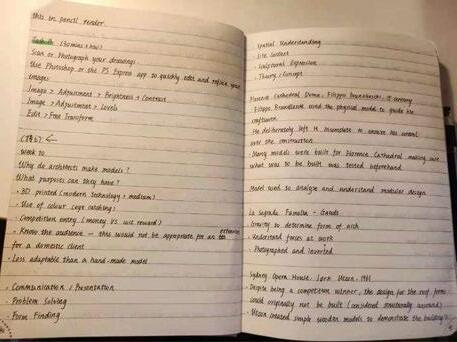 this in pencil render.
Task B (30 mins + hw)
Scan or Photograph your drawings
Use Photoshop or the PS Express app to quickly edit and refine your
images
Image > Adjustment > Brightness + Contrast
Image > Adjustment > Levels
Edit > Free Transform
week 10
Why do architects make models?
What purposes can they have?
• 3D printed (modern technology + medium)
• Use of colour (eye catching)
• Competition entry (money vs. reward)
• Know the audience – this would not be appropriate for an
for a domestic client
• Less adaptable than a hand-made model
• Communication / Presentation
• Problem Solving
• Form Finding
• Spatial Understanding
• Site Context
• Sculptural Expression
• Theory / Concept
Florence Cathedral Dome, Filippo Brunelleschi, 15 century
Filippo Brunelleschi used the physical model to guide his
craftsmen
He deliberately left it incomplete to ensure his control
over the construction
Many models were built for Florence Cathedral, making sure
what was to be built was tested beforehand
Model used to analyse and understand modular design
La Sagrada Familia – Gaudi
Gravity to determine form of arch
• Understand forces at work
• Photographed and inverted
Sydney Opera House, Jørn Utzon, 1961
• Despite being a competition winner, the design for the roof forms
could originally not be built (considered structurally unsound)
• Utzon created simple wooden models to demonstrate the building's